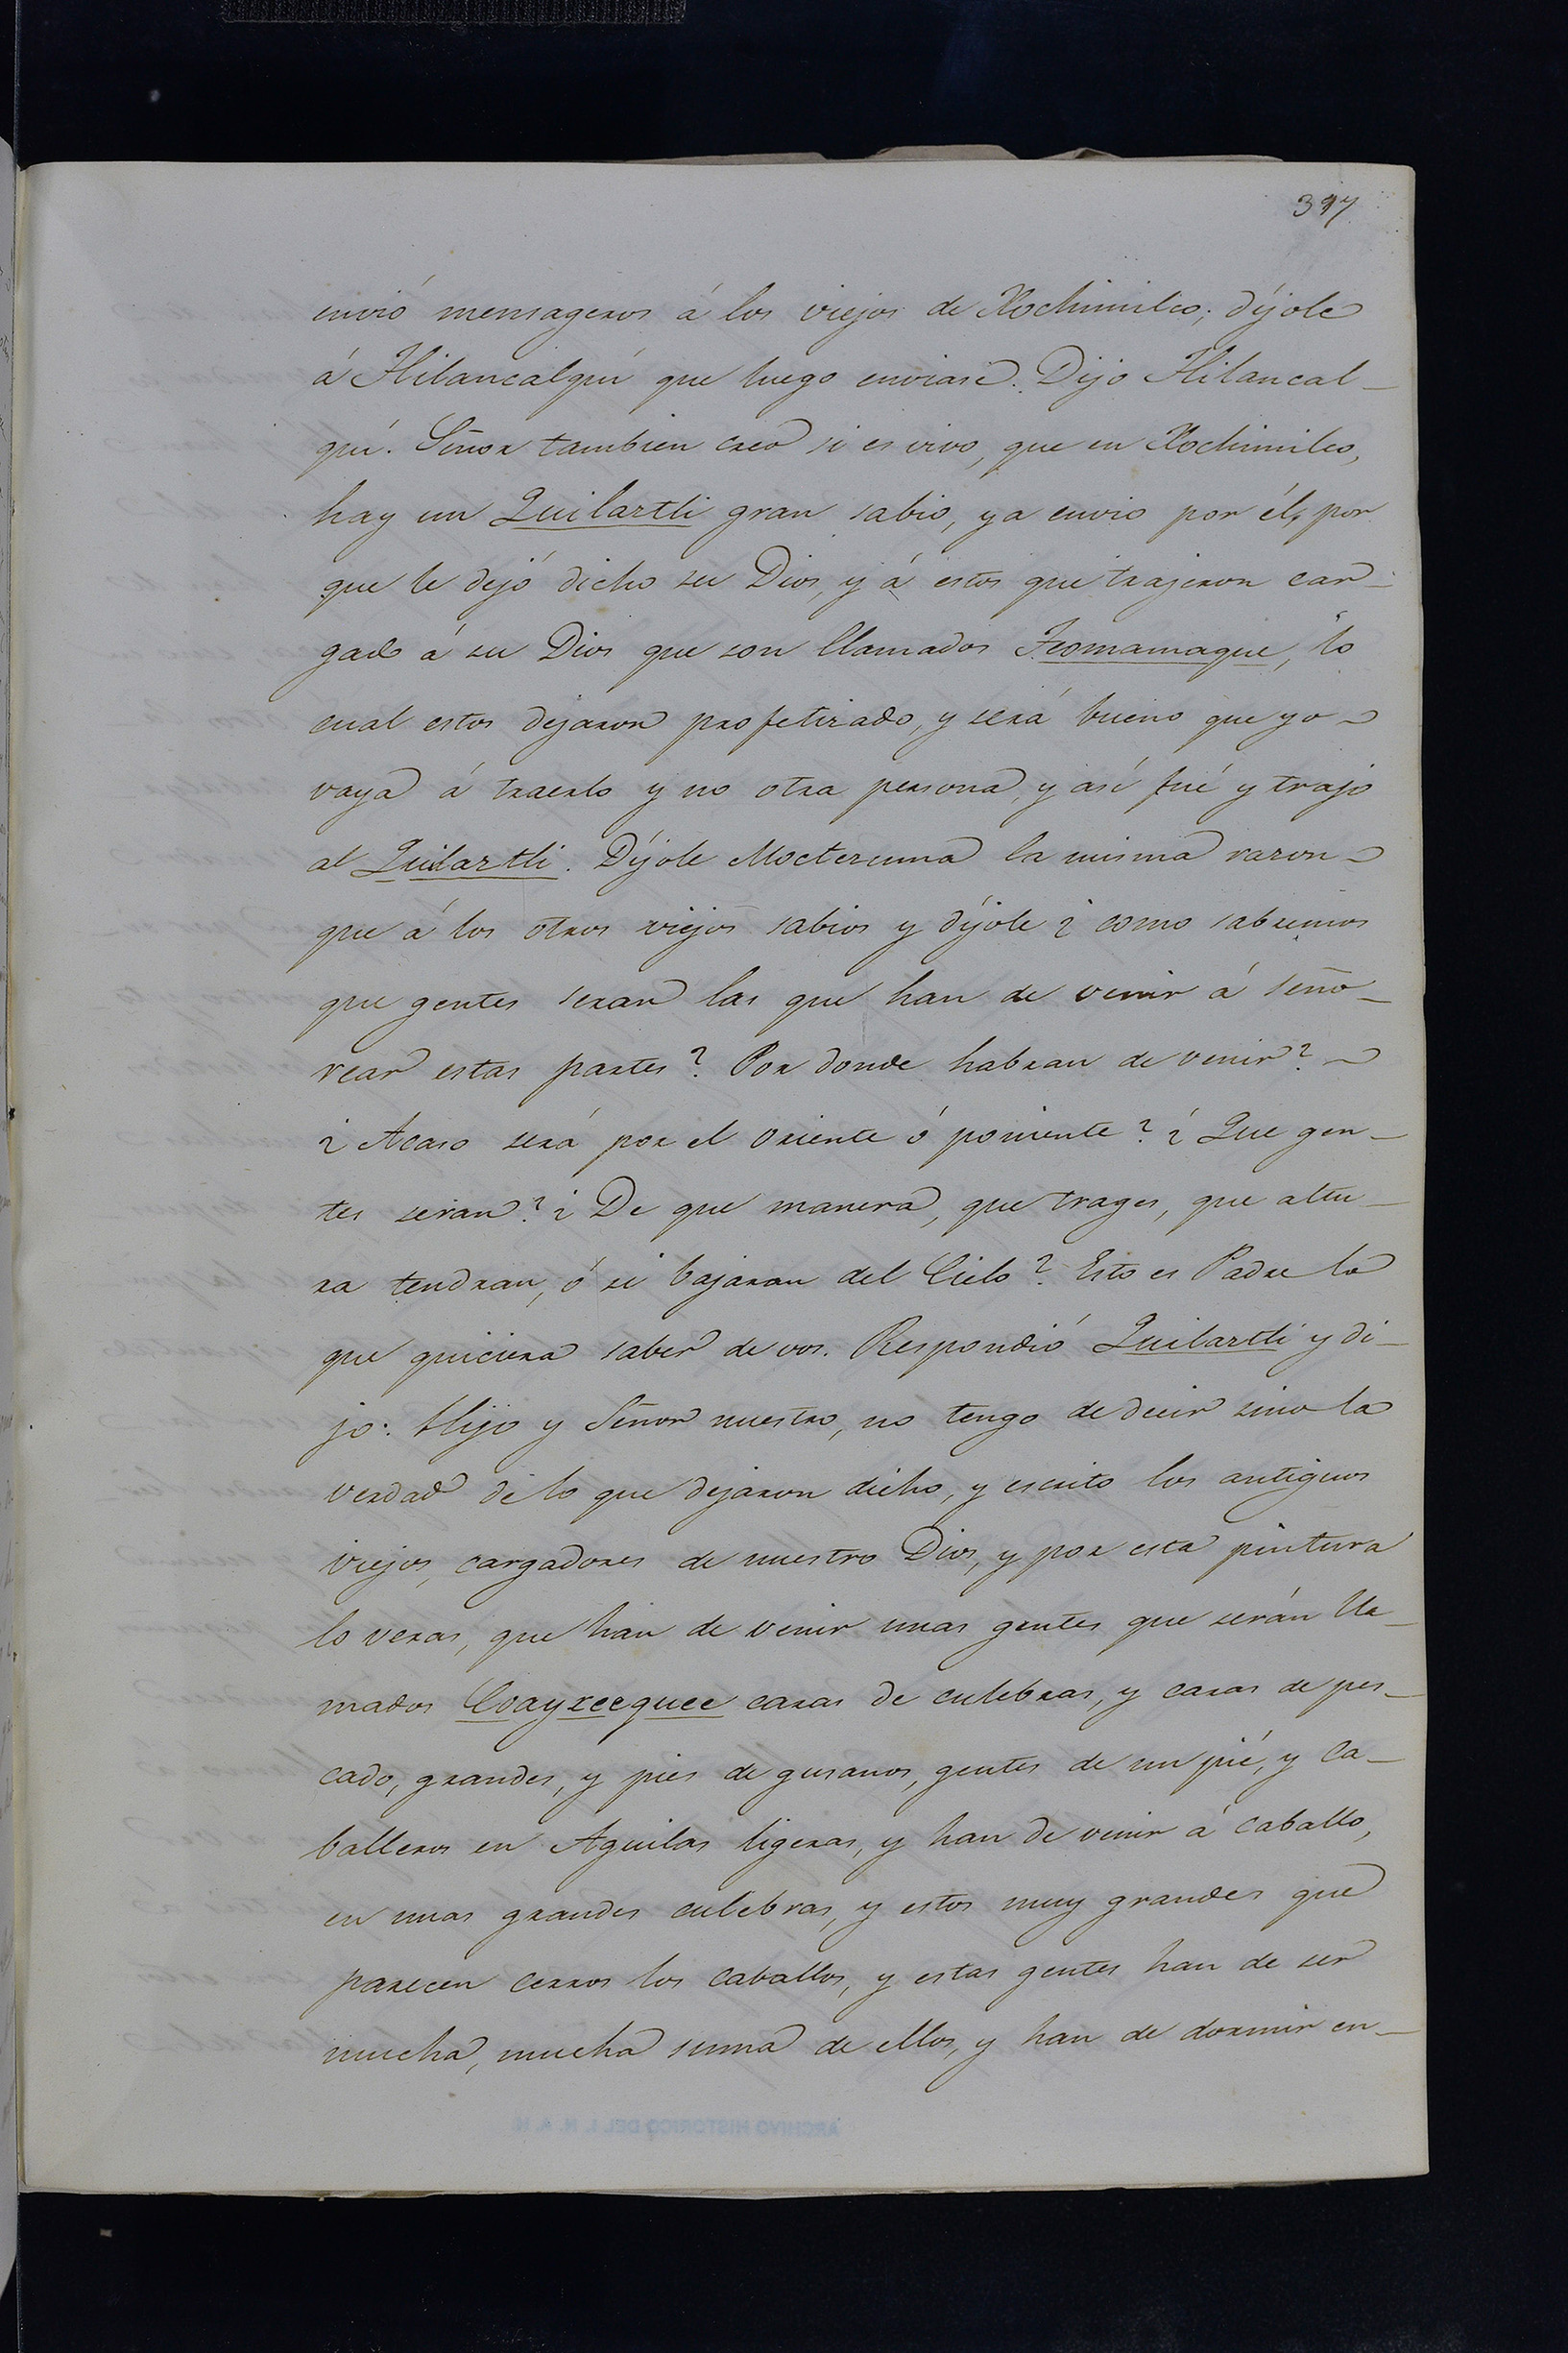 397
envió mensageros á los viejos de Xochimilco; díjole
á Hilancalquí que luego enviase. Dijo Hilancal-
quí. Señor tambien creo si es vivo, que en Xochimilco,
hay un Quilaztli gran sabio, ya envio por él, por
que le dejó dicho su Dios, y á estos que trajeron car-
gado á su Dios que son llamados Teomamaque, lo
cual estos dejaron profetizado, y será bueno que yo
vaya á traerlo y no otra persona, y así fué y trajo
al Quilaztli. Díjole Moctezuma la misma razon
que á los otros viejos sabios y díjole ¿ como sabremos
que gentes seran las que han de venir á seño-
rear estas partes? Por donde habran de venir?
¿ Acaso será por el oriente ó poniente? ¿ Que gen-
tes seran? ¿ De que manera, que trages, que altu-
ra tendran, ó si bajaran del Cielo? Esto es Padre lo
que quiciera saber de vos. Respondió Quilaztli y di-
jo: Hijo y Señor nuestro, no tengo de decir sino la
verdad de lo que dejaron dicho, y escrito los antiguos
viejos, cargadores de nuestro Dios, y por esta pintura
lo veras, que han de venir unas gentes que serán lla-
mados Coayxeequee caras de culebras, y caras de pes-
cado, grandes, y pies de gusanos, gentes de un pié, y Ca-
balleros en Aguilas ligeras, y han de venir á caballo,
en unas grandes culebras, y estos muy grandes que
parecen cerros los caballos, y estas gentes han de ser
mucha, mucha suma de ellos, y han de dormir en-
ARCHIVO HISTORICO DEL I. N. A. H.